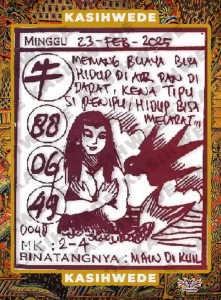 KASIHWEDE
MINGGU 23-FEB-2025
牛
88
06
49
MEMANG BUAYA BISA
HIDUP DI AIR DAN DI
DARAT, KENA TIPU
SI PENIPU, HIDUP BISA
MELARAT...
0040
MK : 2-4
BINATANGNYA :
KASIHWEDE